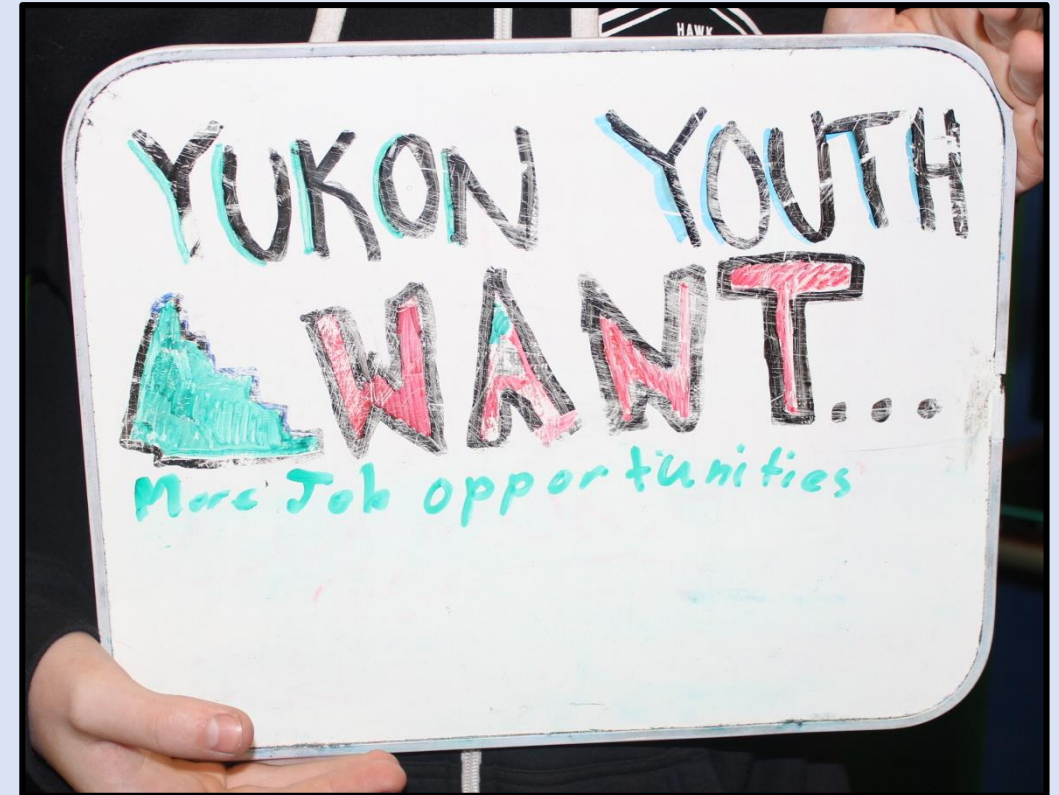 HAWK
YUKON YOUTH
WANT...
More Job opportunities